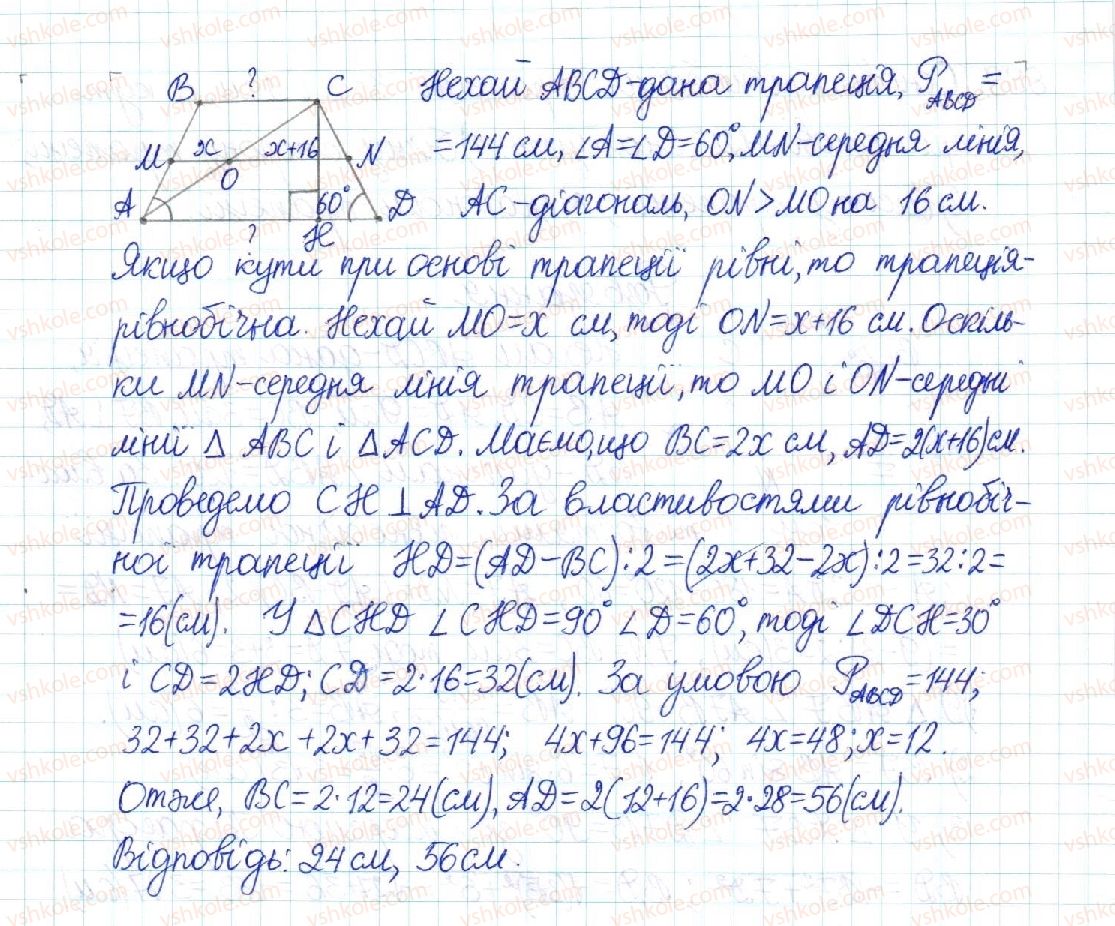 B ? C Нехай ABCD-дана трапеція, P_ABCD =
M x O x+16 N =144 см, ∠A=∠D=60°, MN-середня лінія,
A ? H 60° D AC-діагональ, ON>MO на 16 см.
Якщо кути при основі трапеції рівні, то трапеція-
рівнобічна. Нехай MO=x см, тоді ON=x+16 см. Оскіль-
ки MN-середня лінія трапеції, то MO і ON-середні
лінії △ ABC і △ ACD. Маємо, що BC=2x см, AD=2(x+16)см.
Проведемо CH⊥AD. За властивостями рівнобіч-
ної трапеції HD=(AD-BC):2=(2x+32-2x):2=32:2=
=16(см). У △CHD ∠CHD=90° ∠D=60°, тоді ∠DCH=30°
і CD=2HD; CD=2·16=32(см). За умовою P_ABCD=144;
32+32+2x+2x+32=144; 4x+96=144; 4x=48; x=12.
Отже, BC=2·12=24(см), AD=2(12+16)=2·28=56(см).
Відповідь: 24 см, 56 см.
vshkole.com